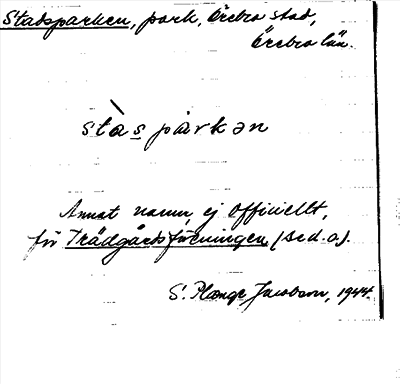 Stadsparken, park, Örebro stad,
Örebro län.
stàs parkən
Annat namn, ej officiellt,
för Trädgårdsföreningen (se d. o.).
S. Plange Jacobson, 1944.